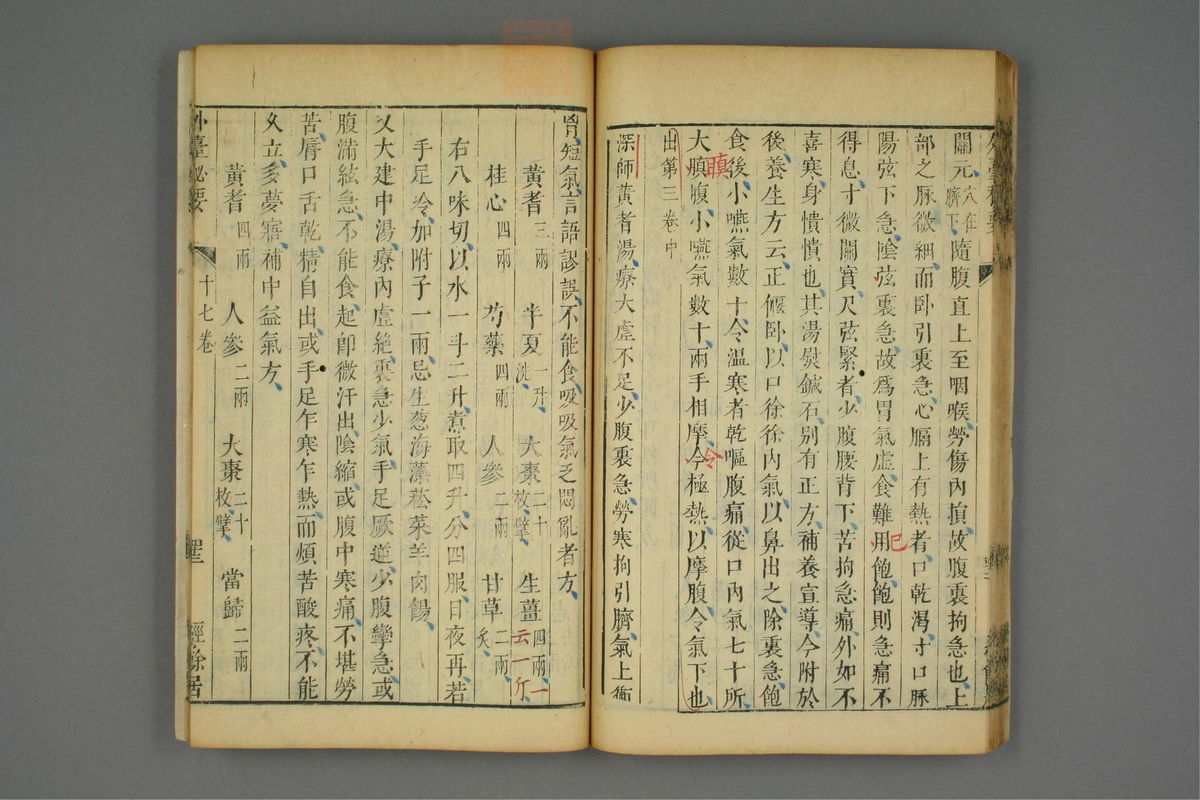 關元穴在臍下隨腹直上至咽喉勞傷內損故腹裏拘急也上
部之脉微細而卧引裏急心膈上有熱者口乾渴寸口脉
陽弦下急陰弦裏急故爲胃氣虛食難用飽飽則急痛不
已
得息寸微關實尺弦緊者少腹腰背下苦拘急痛外如不
喜寒身憒憒也其湯熨鍼石別有正方補養宣導今附於
後養生方云正偃卧以口徐徐內氣以鼻出之除裏急飽
食後小嚥氣數十令溫寒者乾嘔腹痛從口內氣七十所
大䐜腹小嚥氣數十兩手相摩令極熱以摩腹令氣下也
瞋
令
出第三卷中
深師黃耆湯療大虛不足少腹裏急勞寒拘引臍氣上衝
胷短氣言語謬誤不能食吸吸氣乏悶亂者方
黃耆三兩 半夏一升洗 大棗二十枚擘 生薑四兩一
云一斤
桂心四兩 芍藥四兩 人參二兩 甘草二兩炙
右八味切以水一斗二升煮取四升分四服日夜再若
手足冷加附子一兩忌生葱海藻菘菜羊肉餳
又大建中湯療內虛絶裏急少氣手足厥逆少腹攣急或
腹滿絃急不能食起卽微汗出陰縮或腹中寒痛不堪勞
苦脣口舌乾精自出或手足乍寒乍熱而煩苦酸疼不能
久立多夢寤補中益氣方
黃耆四兩 人參二兩 大棗二十枚擘 當歸二兩
外臺祕要 十七卷 經餘居